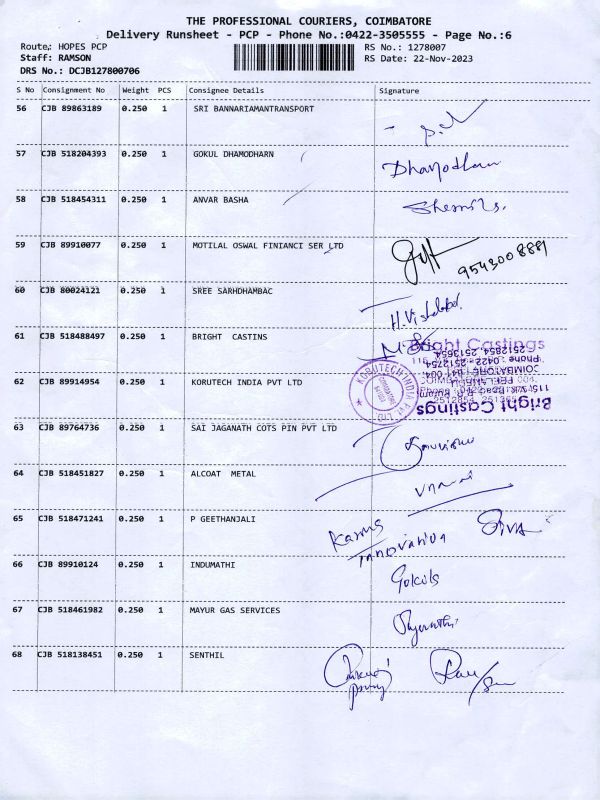 THE PROFESSIONAL COURIERS, COIMBATORE
Delivery Runsheet - PCP - Phone No.:0422-3505555 - Page No.:6
Route: HOPES PCP RS No.: 1278007
Staff: RAMSON RS Date: 22-Nov-2023
DRS No.: DCJB127800706
S No Consignment No Weight PCS Consignee Details Signature
56 CJB 89863189 0.250 1 SRI BANNARIAMANTRANSPORT
57 CJB 518204393 0.250 1 GOKUL DHAMODHARN Dhamodharn
58 CJB 518454311 0.250 1 ANVAR BASHA
59 CJB 89910077 0.250 1 MOTILAL OSWAL FINIANCI SER LTD 9543008881
60 CJB 80024121 0.250 1 SREE SARHDHAMBAC
61 CJB 518488497 0.250 1 BRIGHT CASTINS
Bright Castings
62 CJB 89914954 0.250 1 KORUTECH INDIA PVT LTD
KORUTECH INDIA Pvt. LTD
COIMBATORE
Bright Castings
COIMBATORE - 641 004.
Phone : 0422-2512754
2512854, 2513654
63 CJB 89764736 0.250 1 SAI JAGANATH COTS PIN PVT LTD
64 CJB 518451827 0.250 1 ALCOAT METAL
65 CJB 518471241 0.250 1 P GEETHANJALI SIVA
66 CJB 89910124 0.250 1 INDUMATHI
67 CJB 518461982 0.250 1 MAYUR GAS SERVICES
68 CJB 518138451 0.250 1 SENTHIL